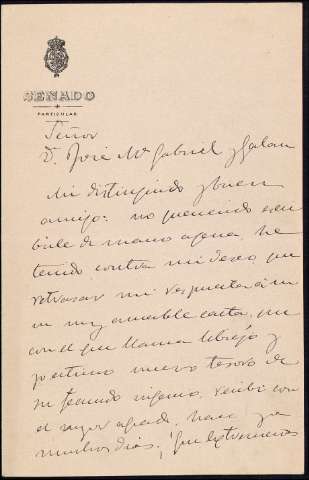 SENADO
PARTICULAR
Señor
D. José Mª Gabriel y Galan
Mi distinguido y buen
amigo: no queriendo escri
birle de mano agena, he
tenido contra mi deseo que
retrasar mi respuesta á su
muy amable carta, que
con el que llama librejo y
yo estimo nuevo tesoro de
su fecundo ingenio, recibí con
el mayor agrado, hace ya
muchos dias. ¡Que